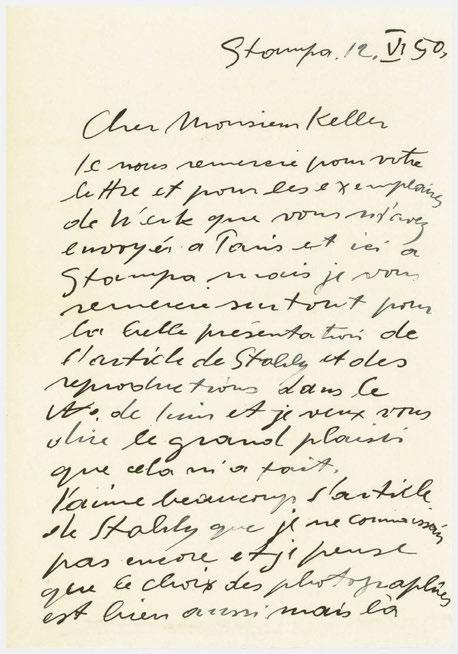 Stampa. 12. VI 50,
Cher Monsieur Keller
Je vous remercie pour votre
lettre et pour les exemplaires
de Werk que vous m'avez
envoyés a Paris et ici a
Stampa mais je vous
remercie surtout pour
la belle présentation de
l'article de Stahly et des
reproductions dans le
No. de Juin et je veux vous
dire le grand plaisir
que cela m'a fait.
J'aime beaucoup l'article
de Stahly que je ne connaissais
pas encore et je pense
que le choix des photographies
est bien aussi mais là